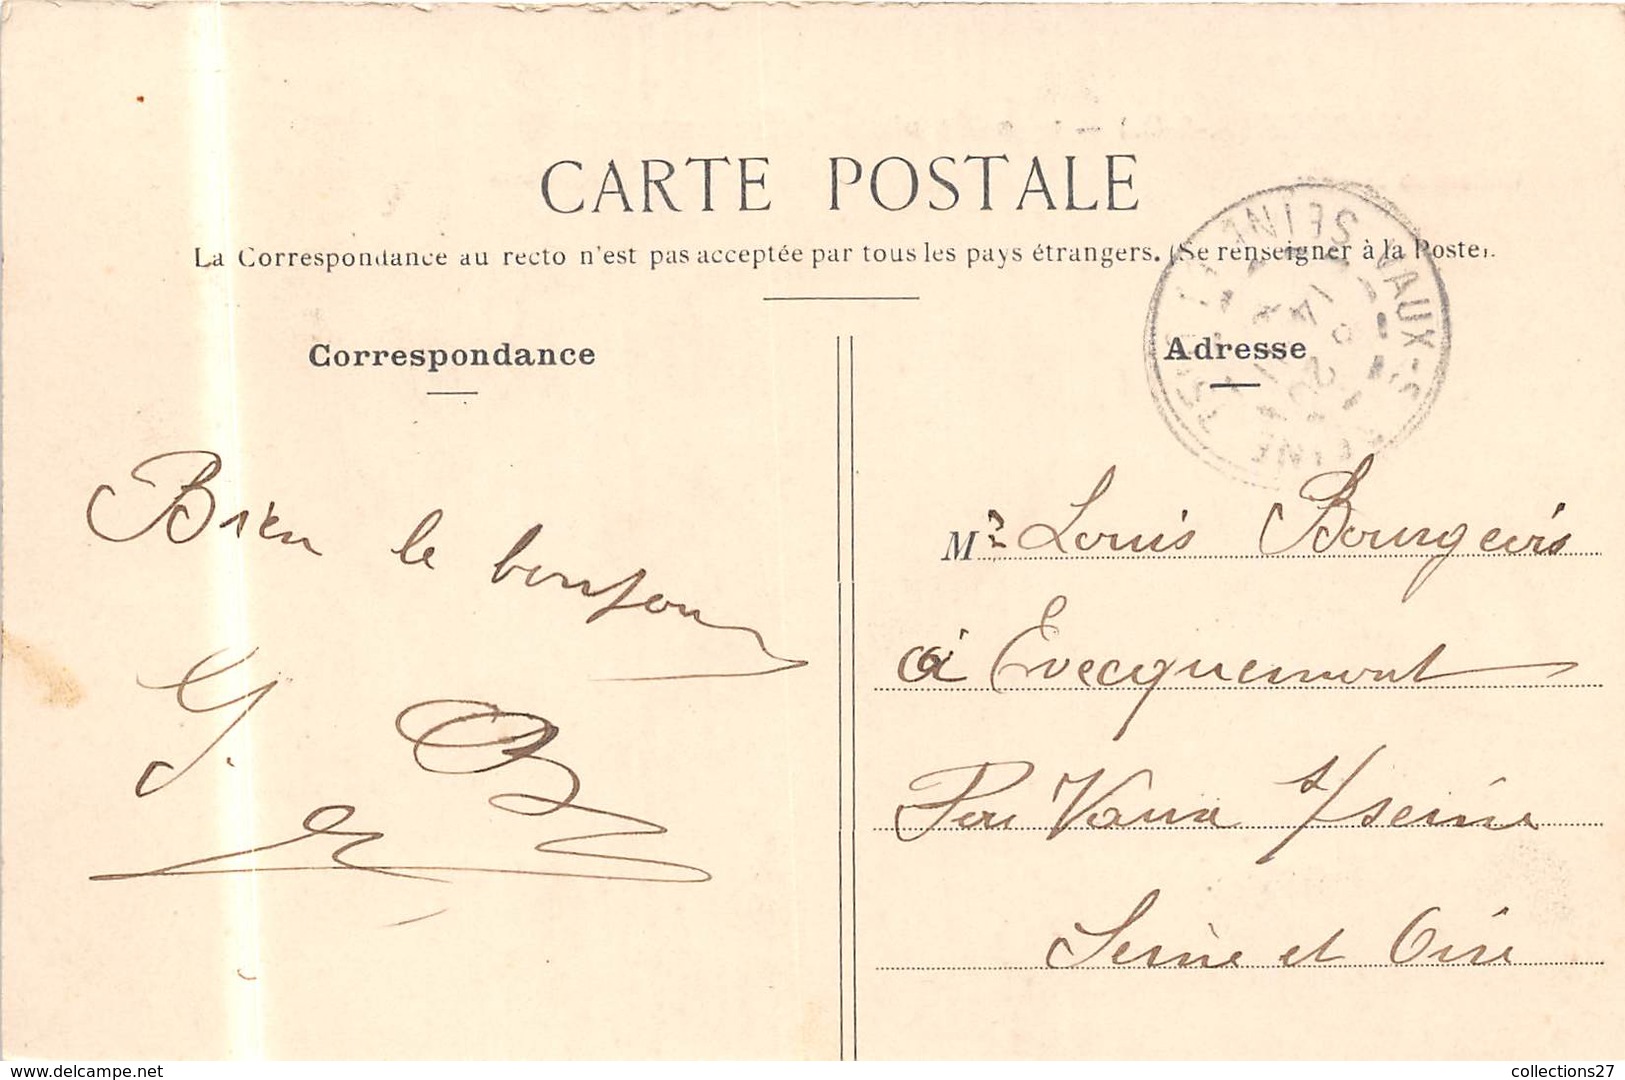 CARTE POSTALE
La Correspondance au recto n'est pas acceptée par tous les pays étrangers. (Se renseigner à la Poste).
Correspondance
Bien le bonjour
Adresse
VAUX-S-SEINE
SEINE ET
Mr Louis Bourgeois
à Evecquemont
Par Vaux s/seine
Seine et Oise
delcampe.net
collections27